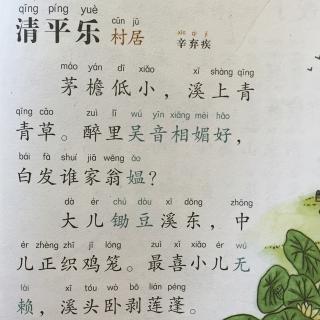 qīng píng yuè cūn jū
清平乐 村居
xīn qì jí
辛弃疾
máo yán dī xiǎo xī shàng qīng
茅檐低小，溪上青
qīng cǎo zuì lǐ wú yīn xiāng mèi hǎo
青草。醉里吴音相媚好，
bái fà shuí jiā wēng ǎo
白发谁家翁媪？
dà ér chú dòu xī dōng zhōng
大儿锄豆溪东，中
ér zhèng zhī jī lóng zuì xǐ xiǎo ér wú
儿正织鸡笼。最喜小儿无
lài xī tóu wò bō lián péng
赖，溪头卧剥莲蓬。